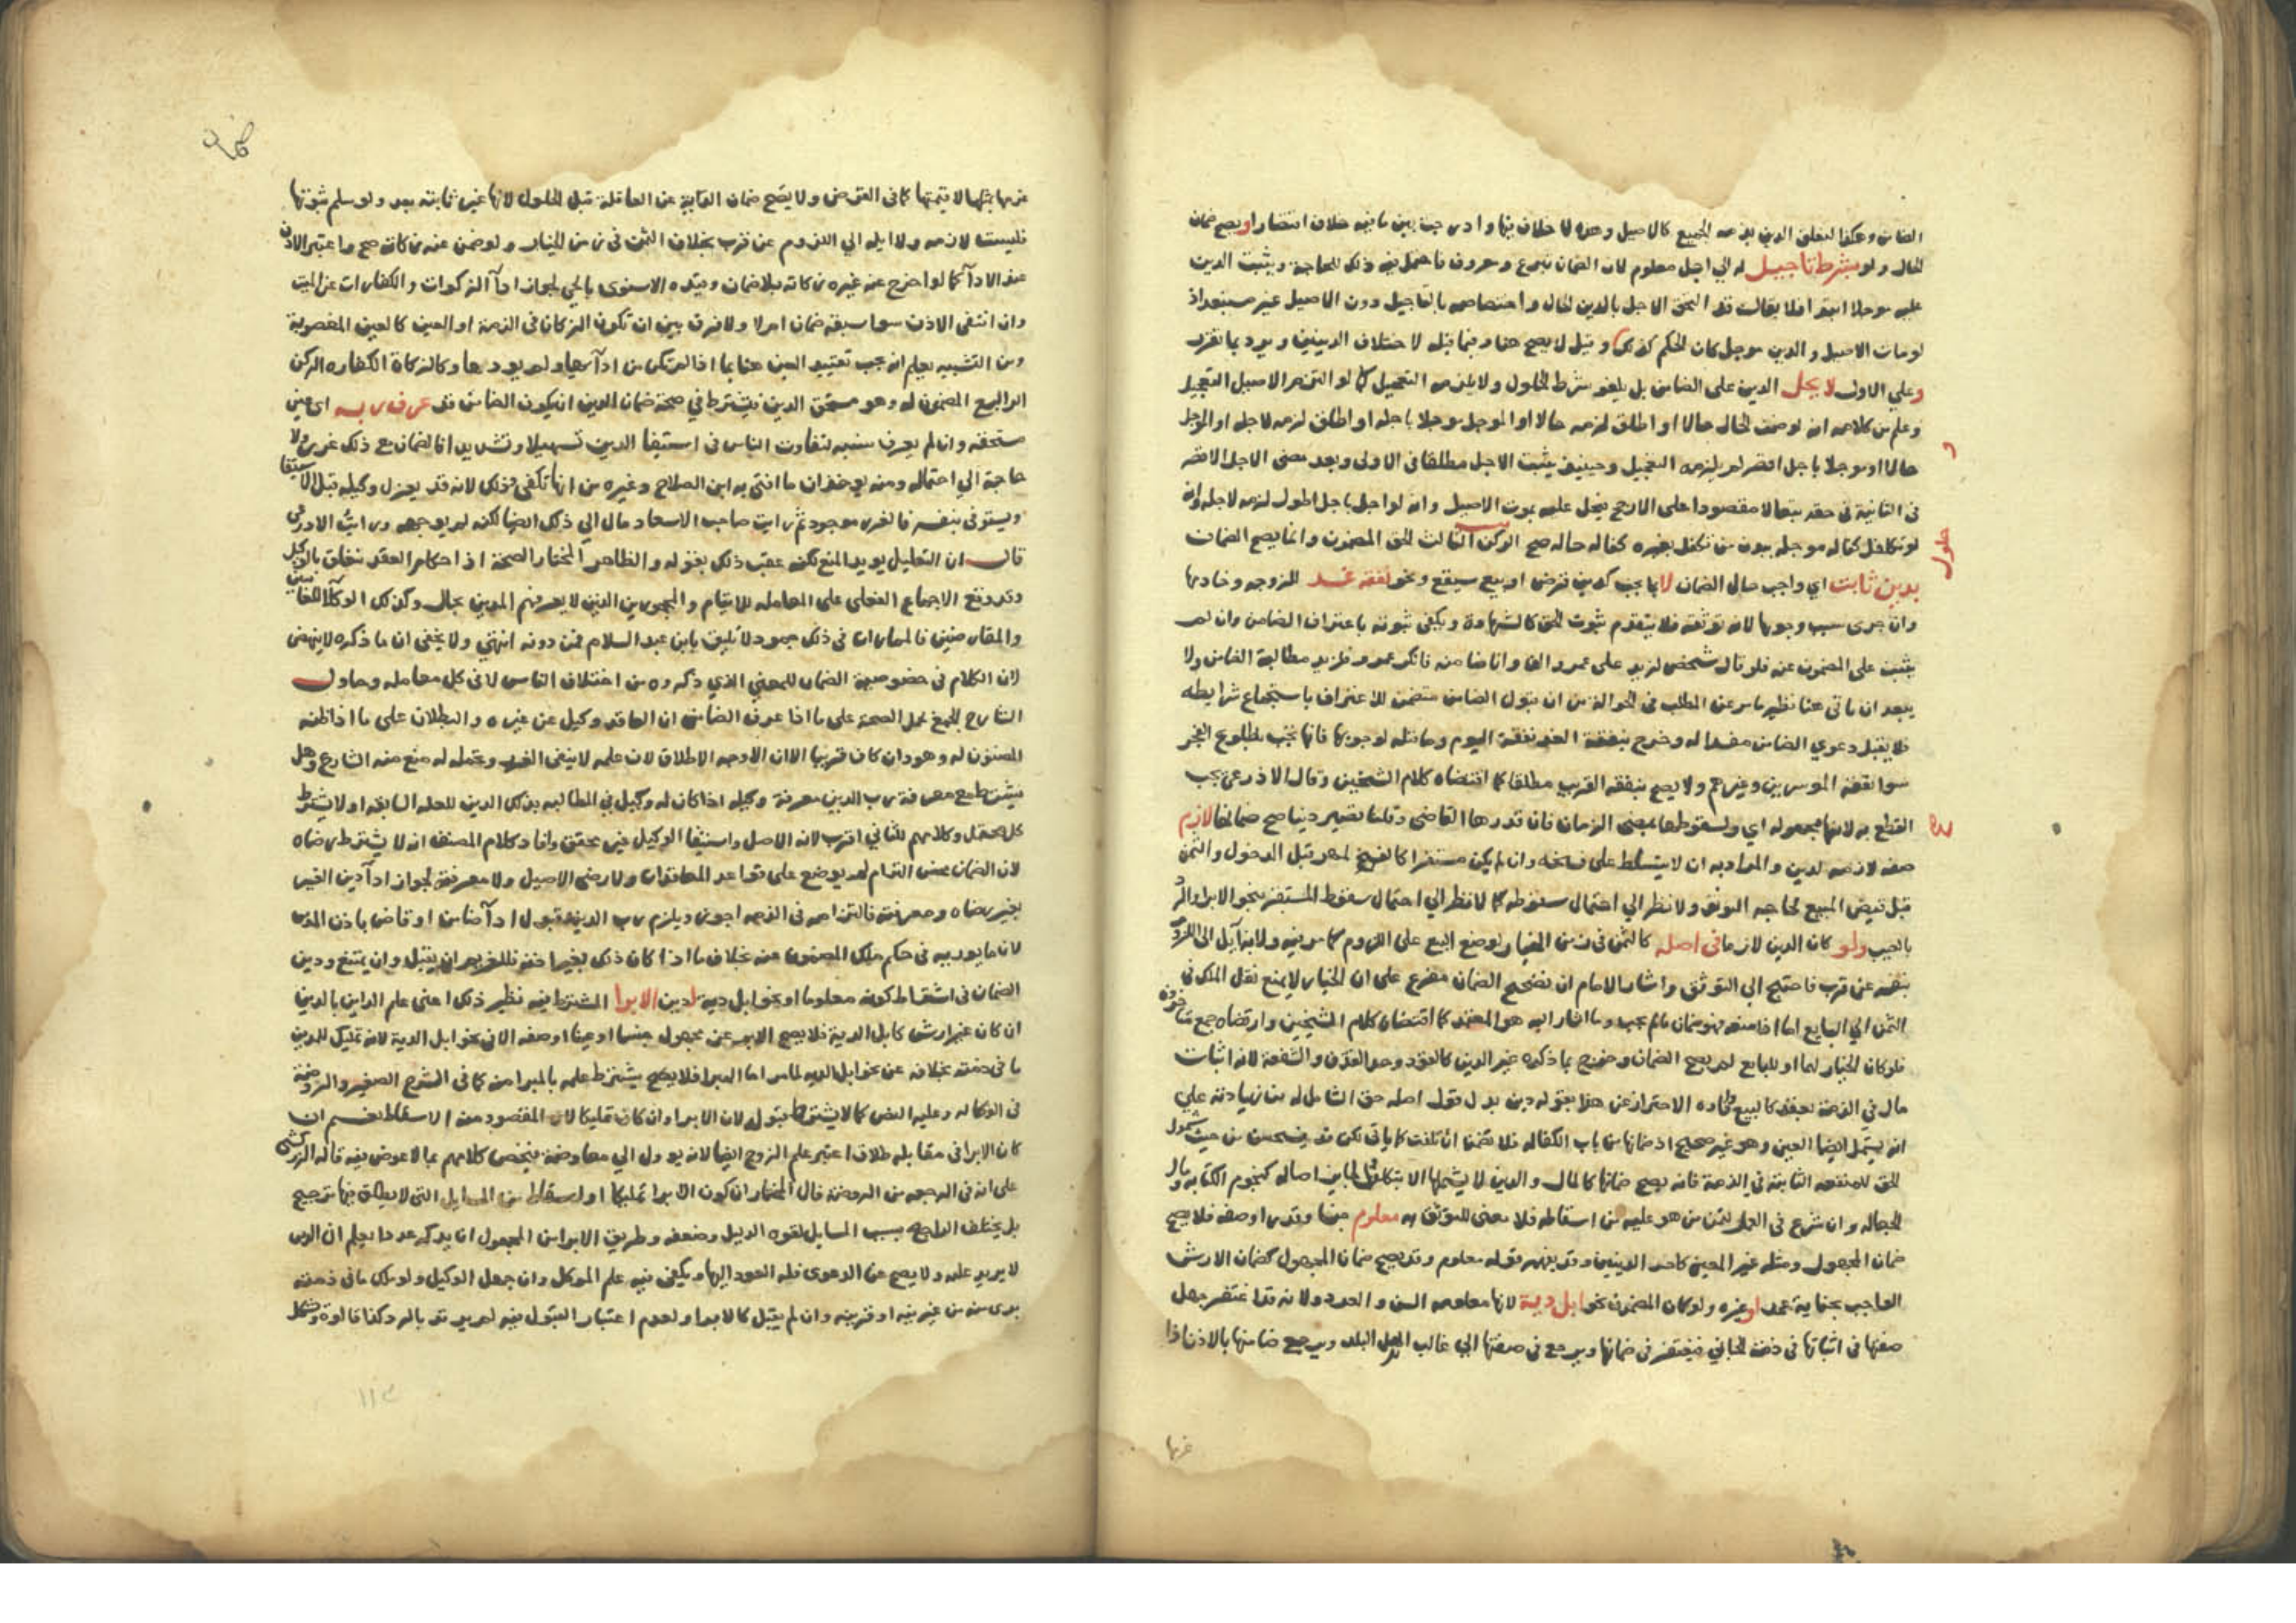 الضامن وهكذا لتعلق الدين بذمة الجميع كالاصيل وهذه لا خلاف فيها
الحال ولو بشرط تاجيل له الي اجل معلوم لان الضمان تبرع ومعروف فاحتمل فيه ذلك للحاجة ويثبت الدين
عليه موجلا ابتدا فلا يقال قد التحق الاجل بالدين الحال واختصاصه بالتاجيل دون الاصيل غير مستبعد اذ
لو مات الاصيل والدين موجل كان الحكم كذلك وقيل لا يصح هنا وفيما قبله لاختلاف الدينين ويرد بما تقرر
وعلي الاول لا يحل الدين على الضامن بل يلغو شرط الحلول ولا يلزمه التعجيل كما لو التزم الاصيل التعجيل
وعلم من كلامه انه لو ضمن الحال حالا او اطلق لزمه حالا او الموجل موجلا باجله او اطلق لزمه لاجله او الموجل
حالا او موجلا باجل اقصر لم يلزمه التعجيل وحينئذ يثبت الاجل مطلقا في الاولى وبعد مضى الاجل الاقصر
في الثانية في حقه تبعا لا مقصودا على الارجح فيحل عليه بموت الاصيل وانه لو اجل باجل اطول لزمه لاجله وانه
لو تكافل كفالة موجلة ببدن من تكفل بغيره كفالة حالة صح الركن الثالث الحق المضمون وانما يصح الضمان
بدين ثابت اي واجب حال الضمان لا بما يجب كدين قرض او بيع سيقع ونحو نفقة غد للزوجة وخادمها
وان جرى سبب وجوبها لانه توثقة فلا يتقدم ثبوت الحق كالشهادة ويكفي ثبوته باعتراف الضامن وان لم
يثبت على المضمون عنه فلو قال شخص لزيد على عمرو الف وانا ضامنه فانكر عمرو فلزيد مطالبة الضامن ولا
يبعد ان ياتي هنا نظير ما مر عن المطلب في الحوالة من ان قبول الضامن متضمن للاعتراف باستجماع شرايطه
فلا يقبل دعوي الضامن مفسدا له وخرج بنفقة الغد نفقة اليوم وما قبله لوجوبها فانها تجب بطلوع الفجر
سوا نفقة الموسرين وغيرهم ولا يصح بنفقة القريب مطلقا كما اقتضاه كلام الشيخين وقال الاذرعي يجب
القطع به لانها مجهولة اي ولسقوطها بمضى الزمان فان قدرها القاضي وقلنا تصير دينا صح ضمانها لازم
صفة لازمة لدين والمراد به ان لا يتسلط على فسخه وان لم يكن مستقرا كالمهر قبل الدخول والثمن
قبل قبض المبيع لحاجة التوثق ولا نظر الي احتمال سقوطه كما لا نظر الي احتمال سقوط المستقر بنحو الابرا والرد
بالعيب ولو كان الدين لازما في اصله كالثمن في زمن الخيار لوضع البيع على اللزوم كما مر فيه ولانه آيل الى اللزوم
بنفسه عن قرب فاحتيج الي التوثق واشار الامام ان تصحيح الضمان مفرع على ان الخيار لا يمنع نقل الملك في
الثمن الي البايع اما اذا منعه فهو ضمان ما لم يجب وما اشار اليه هو المعتمد كما اقتضاه كلام الشيخين وارتضاه جمع متاخرون
فلو كان الخيار لهما او للبايع لم يصح الضمان وخرج بما ذكره غير الدين كالقود وحد القذف والشفعة لانه اثبات
مال في الذمة بعقد كالبيع وافاده الاحتراز عن هذا بقوله دين بدل قول اصله حق الشامل له من زيادته علي
انه يشمل ايضا العين وهو غير صحيح اذ ضمانها من باب الكفالة فلا تضمن ان تلفت كما ياتي لكن قد يستحسن من حيث شمول
الحق للمنفعة الثابتة في الذمة فانه يصح ضمانها كالمال والدين لا يشملها الا بتكلف كنجوم الكتابة ومال
الجعالة وان شرع في العمل لتمكن من هو عليه من اسقاطه فلا معنى للتوثق به معلوم جنسا وقدرا وصفة فلا يصح
ضمان المجهول ومثله غير المعين كاحد الدينين وقد يفهمه قوله معلوم وقد يصح ضمان المجهول كضمان الارش
الواجب بجناية عمد او غيره ولو كان المضمون نحو ابل دية لانها معلومة السن والعدد ولانه قد اغتفر جهل
صفتها في اثباتها في ذمة الجاني فيغتفر في ضمانها ويرجع في صفتها الي غالب ابل البلد ويرجع ضامنها بالاذن اذا
غرمها
غرمها بمثلها لا قيمتها كما في القرض ولا يصح ضمان الدية عن العاقلة قبل الحلول لانها غير ثابتة بعد ولو سلم ثبوتها
فليست لازمة ولا ايلة الي اللزوم عن قرب بخلاف الثمن في زمن الخيار ولو ضمن عنه زكاته صح واعتبر الاذن
عند الادآ كما لو اخرج عنه غيره زكاته بلا ضمان وقيده الاسنوي بالحي لجواز ادآ الزكوات والكفارات عن الميت
وان انتفى الاذن سوا سبقه ضمان ام لا ولا فرق بين ان تكون الزكاة في الذمة او العين كالعين المغصوبة
ومن التشبيه يعلم انه يجب تقييد العين هنا بما اذا تمكن من ادآيها ولم يودها وكالزكاة الكفاره الركن
الرابع المضمون له وهو مستحق الدين فيشترط في صحة ضمان الدين ان يكون الضامن قد عرف ربه اي عين
مستحقه وان لم يعرف نسبه لتفاوت الناس في استيفا الدين تسهيلا وتشديدا فالضمان مع ذلك غرر ولا
حاجة الي احتماله ومنه يوخذ ان ما افتي به ابن الصلاح وغيره من انها تكفي وذلك لانه قد يعزل وكيله قبل الاستيفا
ويستوفي بنفسه فالغرر موجود ثم رايت صاحب الاسعاد مال الي ذلك ايضا لكنه لم يوجهه ورايت الاذرعي
قال ان التعليل يويد المنع لكنه عقب ذلك بقوله والظاهر المختار الصحة اذ احكام العقد تتعلق بالوكيل
وقد وقع الاجماع الفعلي على المعاملة للايتام والمحجورين الذين لا يعرفهم المدين بحال وكذلك الوكلا للغايبين
والمقارضين فالمماراة في ذلك جمود لا تليق بابن عبد السلام فمن دونه انتهي ولا يخفى ان ما ذكره لا ينهض
لان الكلام في خصوصية الضمان للمعني الذي ذكروه من اختلاف الناس لا في كل معاملة وحاول
الشارح الجمع بحمل الصحة على ما اذا عرف الضامن ان العاقد وكيل عن غيره والبطلان على ما اذا ظنه
المضمون له وهو وان كان قريبا الا ان الاوجه الاطلاق لان علمه لا ينفي الغرر وتحمله له منع منه الشارع وهل
يشترط مع معرفة رب الدين معرفة وكيله اذا كان له وكيل في المطالبة بذلك الدين للعلة السابقة او لا يشترط
كل محتمل وكلامهم للثاني اقرب لانه الاصل واستيفا الوكيل غير محقق وافاد كلام المصنف انه لا يشترط رضاه
لان الضمان محض التزام لم يوضع على قواعد المعاقدات ولا رضى الاصيل ولا معرفته لجواز ادآ دين الغير
بغير رضاه ومعرفته فالتزامه في الذمة اجوز ويلزم رب الدين قبول ادآ ضامن او قاض باذن المدين
لان ما يوديه في حكم ملك المضمون عنه بخلاف ما اذا كان ذلك بغير اذنه فللغريم ان يقبل وان يمتنع ودين
الضمان في اشتراط كونه معلوما او نحو ابل دية لدين الابرا المشترط فيه نظير ذلك اعني علم الداين بالدين
ان كان غير ارش كابل الدية فلا يصح الابرا عن مجهول جنسا او عينا او صفة الا في نحو ابل الدية لانه تمليك للمدين
ما في ذمته بخلافه عن نحو ابل الدية لما مر اما المبرا فلا يشترط علمه بالمبرا منه كما في الشرح الصغير والروضة
في الوكالة وعليه النص كما لا يشترط قبوله لان الابرا وان كان تمليكا لان المقصود منه الاسقاط نعم ان
كان الابرا في مقابلة طلاق اعتبر علم الزوج ايضا لانه يوول الي معاوضة فيخص كلامهم بما لا عوض فيه قاله الزركشي
على انه في الرجعة من الروضة قال المختار ان كون الابرا تمليكا او اسقاطا من المسايل التي لا يطلق فيها ترجيح
بل يختلف الراجح بحسب المسايل لقوة الدليل وضعفه وطريق الابرا من المجهول ان يذكر عددا يعلم ان الدين
لا يزيد عليه ولا يصح هنا الدعوى فله العود اليها ويكفي فيه علم الموكل وان جهل الوكيل ولو ملك ما في ذمته
بري منه من غير نية او قرينة وان لم يقبل كالابرا ولعدم اعتبار القبول فيه لم يرتد بالرد كذا قالوه